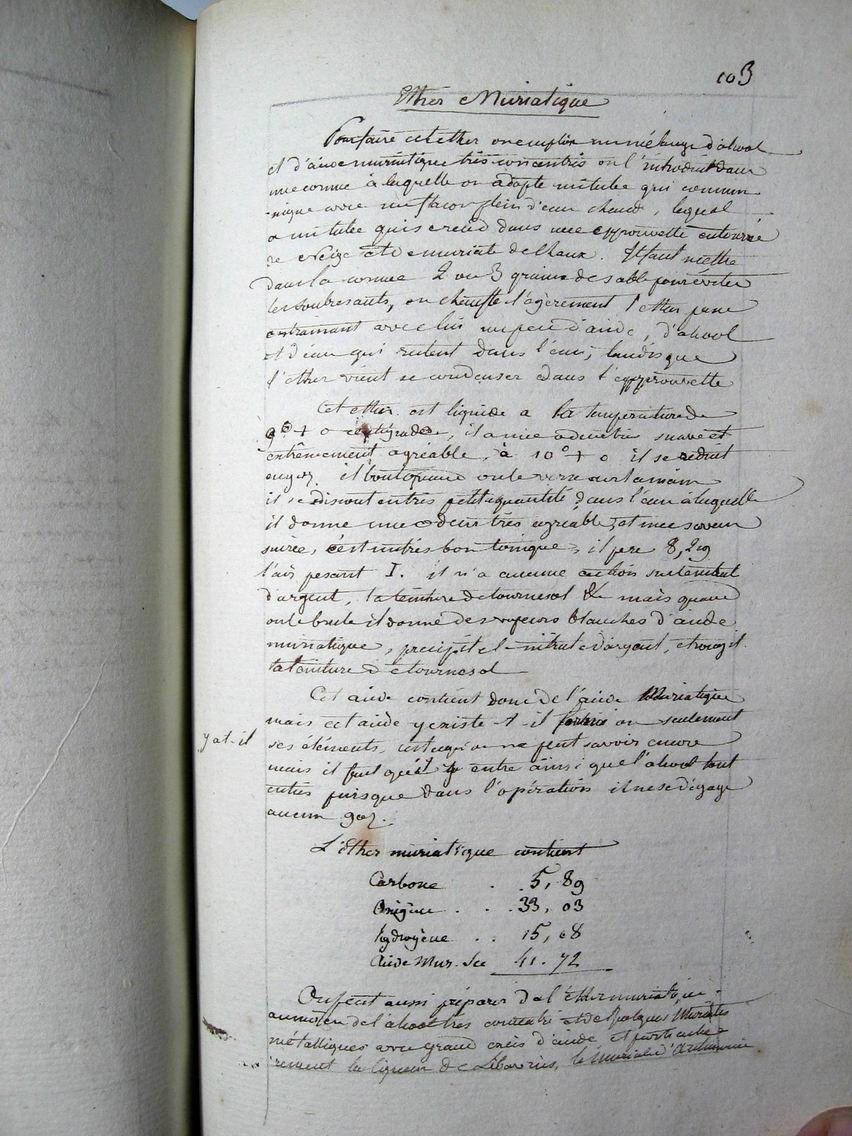 103
Ether Muriatique
Pour faire cet ether on emploie un mélange d'alcool
et d'acide muriatique très concentrés on l'introduit dans
une cornue à laquelle on adapte un tube qui commun
-nique avec un flacon plein d'eau chaude, lequel
a un tube qui se rend dans une epprouvette entourée
de Neige et de muriate de chaux. Il faut mettre
dans la cornue 2 ou 3 grains de sable pour éviter
les soubresauts, on chauffe légerement l'ether passe
entrainant avec lui un peu d'acide, d'alcool
et d'eau qui restent dans l'eau, tandis que
l'ether vient se condenser dans l'epprouvette
Cet ether est liquide a la température de
+ 0 centigrades, il a une odeur suave et
extrêmement agréable, à 10° + 0 il se reduit
en gaz. il bout quand on le verse sur la main
il se dissout en très petite quantité dans l'eau à laquelle
il donne une odeur très agréable et une saveur
sucrée, c'est un très bon tonique, il pese 8,29
l'air pesant I. il n'a aucune action sur le nitrate
d'argent, la teinture de tournesol & mais quand
on le brule il donne des vapeurs blanches d'acide
muriatique, precipite le nitrate d'argent, et rougit
la teinture de tournesol
Cet acide contient donc de l'acide Muriatique
mais cet acide y existe-t-il formé ou seulement
y a t-il ses éléments, c'est ce qu'on ne peut savoir encore
mais il faut qu'il y entre ainsi que l'alcool tout
entier puisque dans l'opération il ne se dégage
aucun gaz.
L'Ether muriatique contient
Carbone . 5,89
Oxigène . . 33,03
hydrogène . . 15,08
Acide Mur. Sec 41.72
On peut aussi préparer de l'Ether muriatique
au moyen de l'alcool très concentré et de quelques Muriates
métalliques avec grand excès d'acide et particuliè
rement la liqueur de Libavius, le muriate d'Antimoine